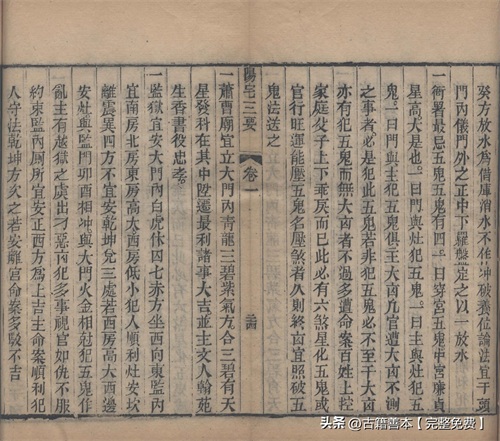 癸方放水為備庫消水不作坤破獲位論法宜于頭
門內儀門外之正中下羅盤定之以一放水
一衙署最忌五鬼五鬼有四一曰穿宮五鬼中宮廉貞
星高大是也一曰門與灶犯五鬼一曰主與灶犯五
鬼一曰門與主犯五鬼俱主大凶凡官遭大凶不測
之事者必是犯此五鬼若非犯五鬼必不至于大凶
亦有犯五鬼而無大凶者不過多遺命案百姓上控
家庭父子上下乖戾而已此必有六煞星化五鬼或
官行旺運能壓五鬼名壓煞者久則終凶宜照破五
鬼法送之
陽宅三要 卷一
一蕭曹廟宜立大門內青龍三碧紫氣方合三碧有天
星發科在其中陞遷最利諸事大吉並主文人翰苑
生香書役忠孝
一監獄宜安大門內白虎休囚七赤方坐西向東監內
宜南房北房東房高大西房低小犯人順利灶安坎
離震巽四方不宜安乾坤兌三處若西房高大西邊
安灶與監門卯酉相冲與大門火金相尅犯五鬼作
亂主有越獄之虞出刁惡凶犯多事視官如仇不服
約束監內廁所宜安正西方為上吉主命案順利犯
人守法乾坤方次之若安離宮命案多駁不吉
头条 @古籍善本【完整免费】